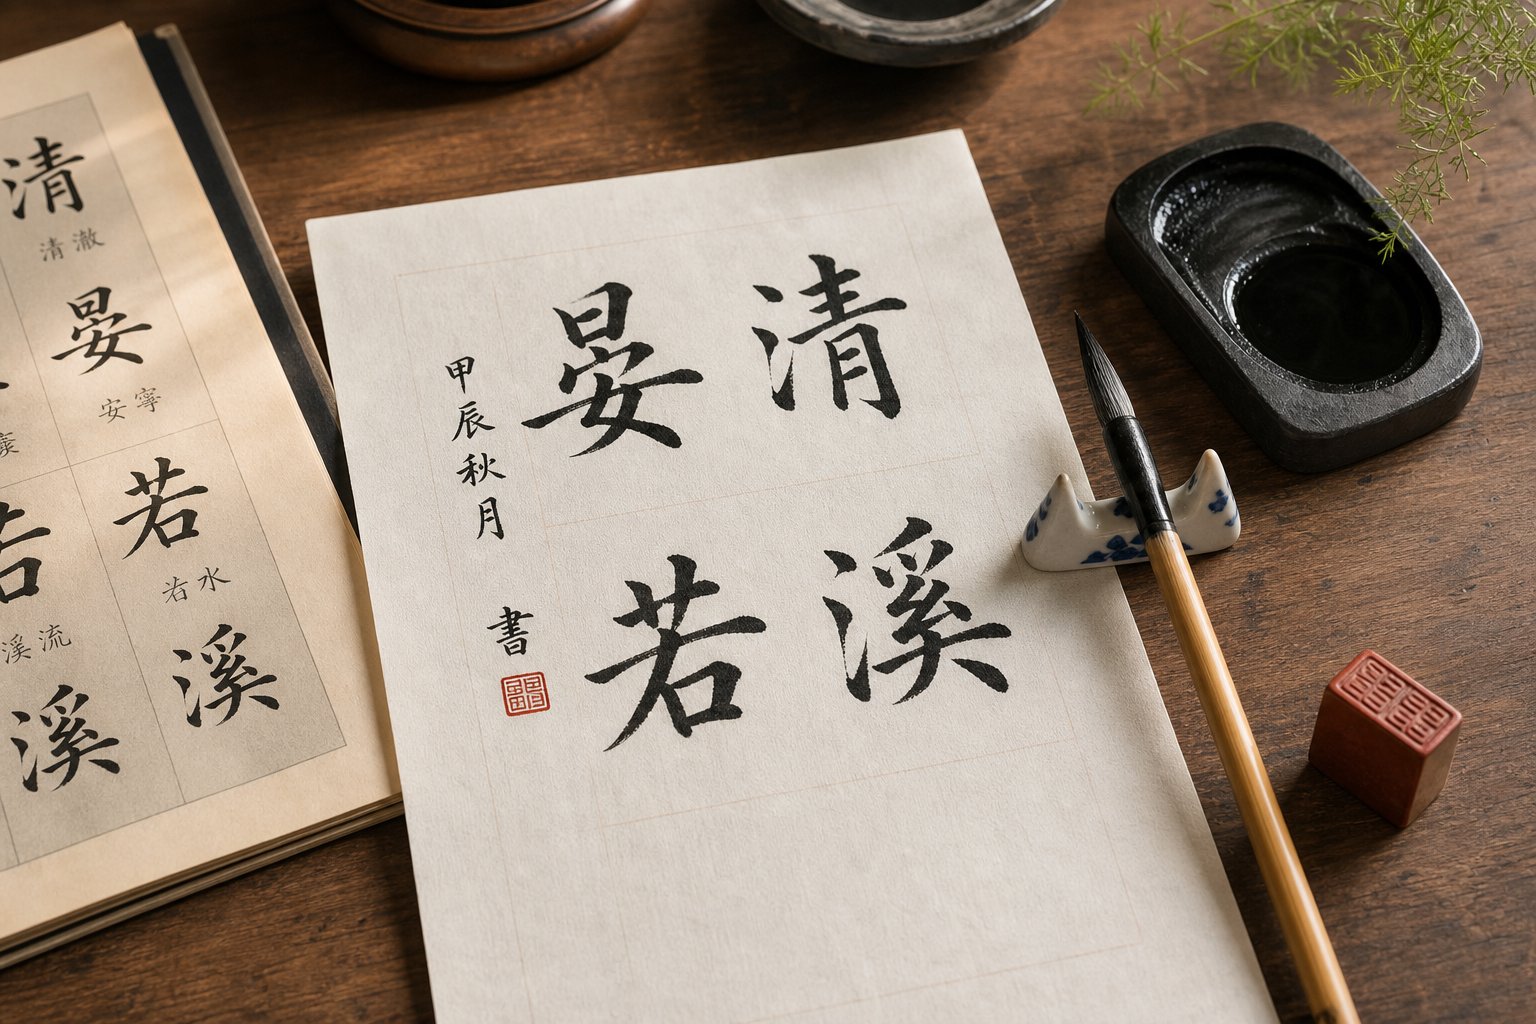 清溪
晏若
甲辰秋月
書
清
清澈
晏
安寧
若
若水
溪
若
溪流
溪